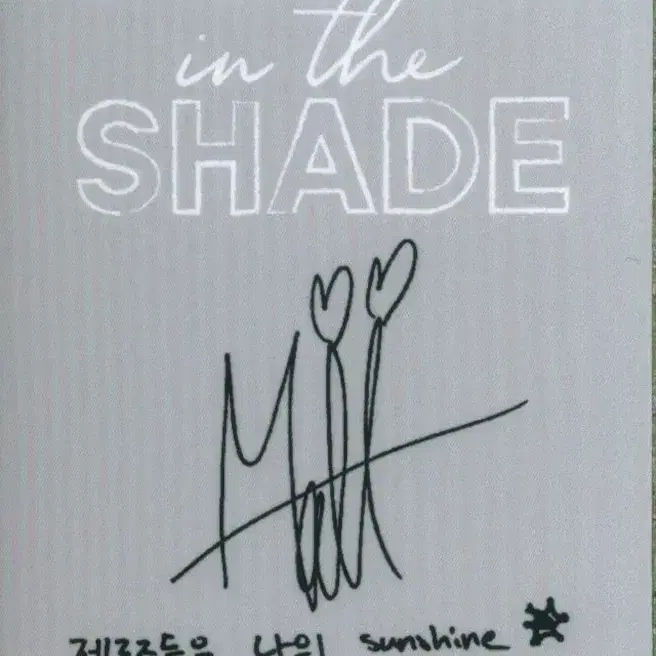 in the
SHADE
Matt
제로즈들은 나의 sunshine